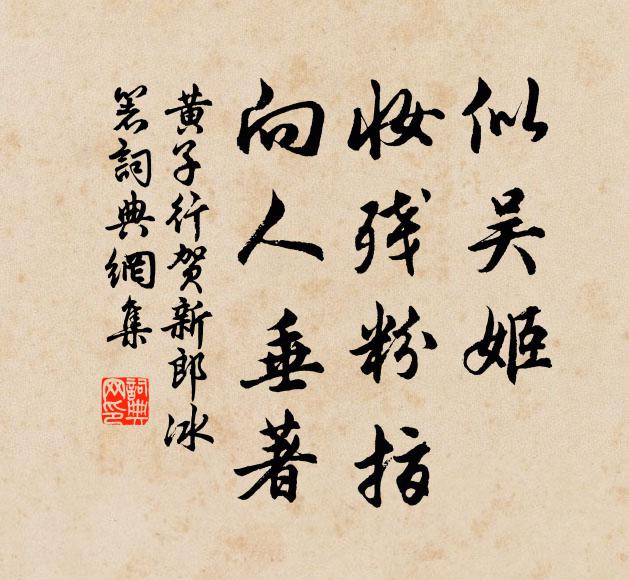 似吴姬
妆残粉指
向人垂著
黄子行贺新郎冰
箸詞典網集
詞典
网印